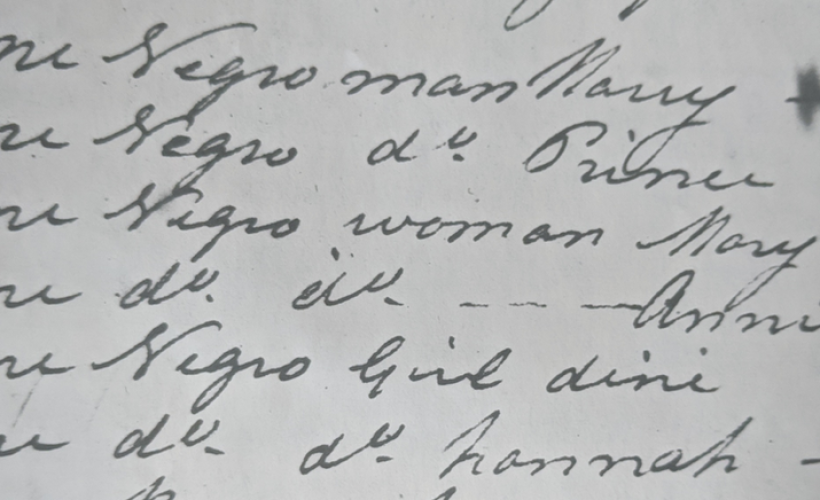 ne Negro man Harry
ne Negro do. Prince
ne Negro woman Mary
ne do. do. - - - Anni
ne Negro Girl dini
ne do. do. hannah -